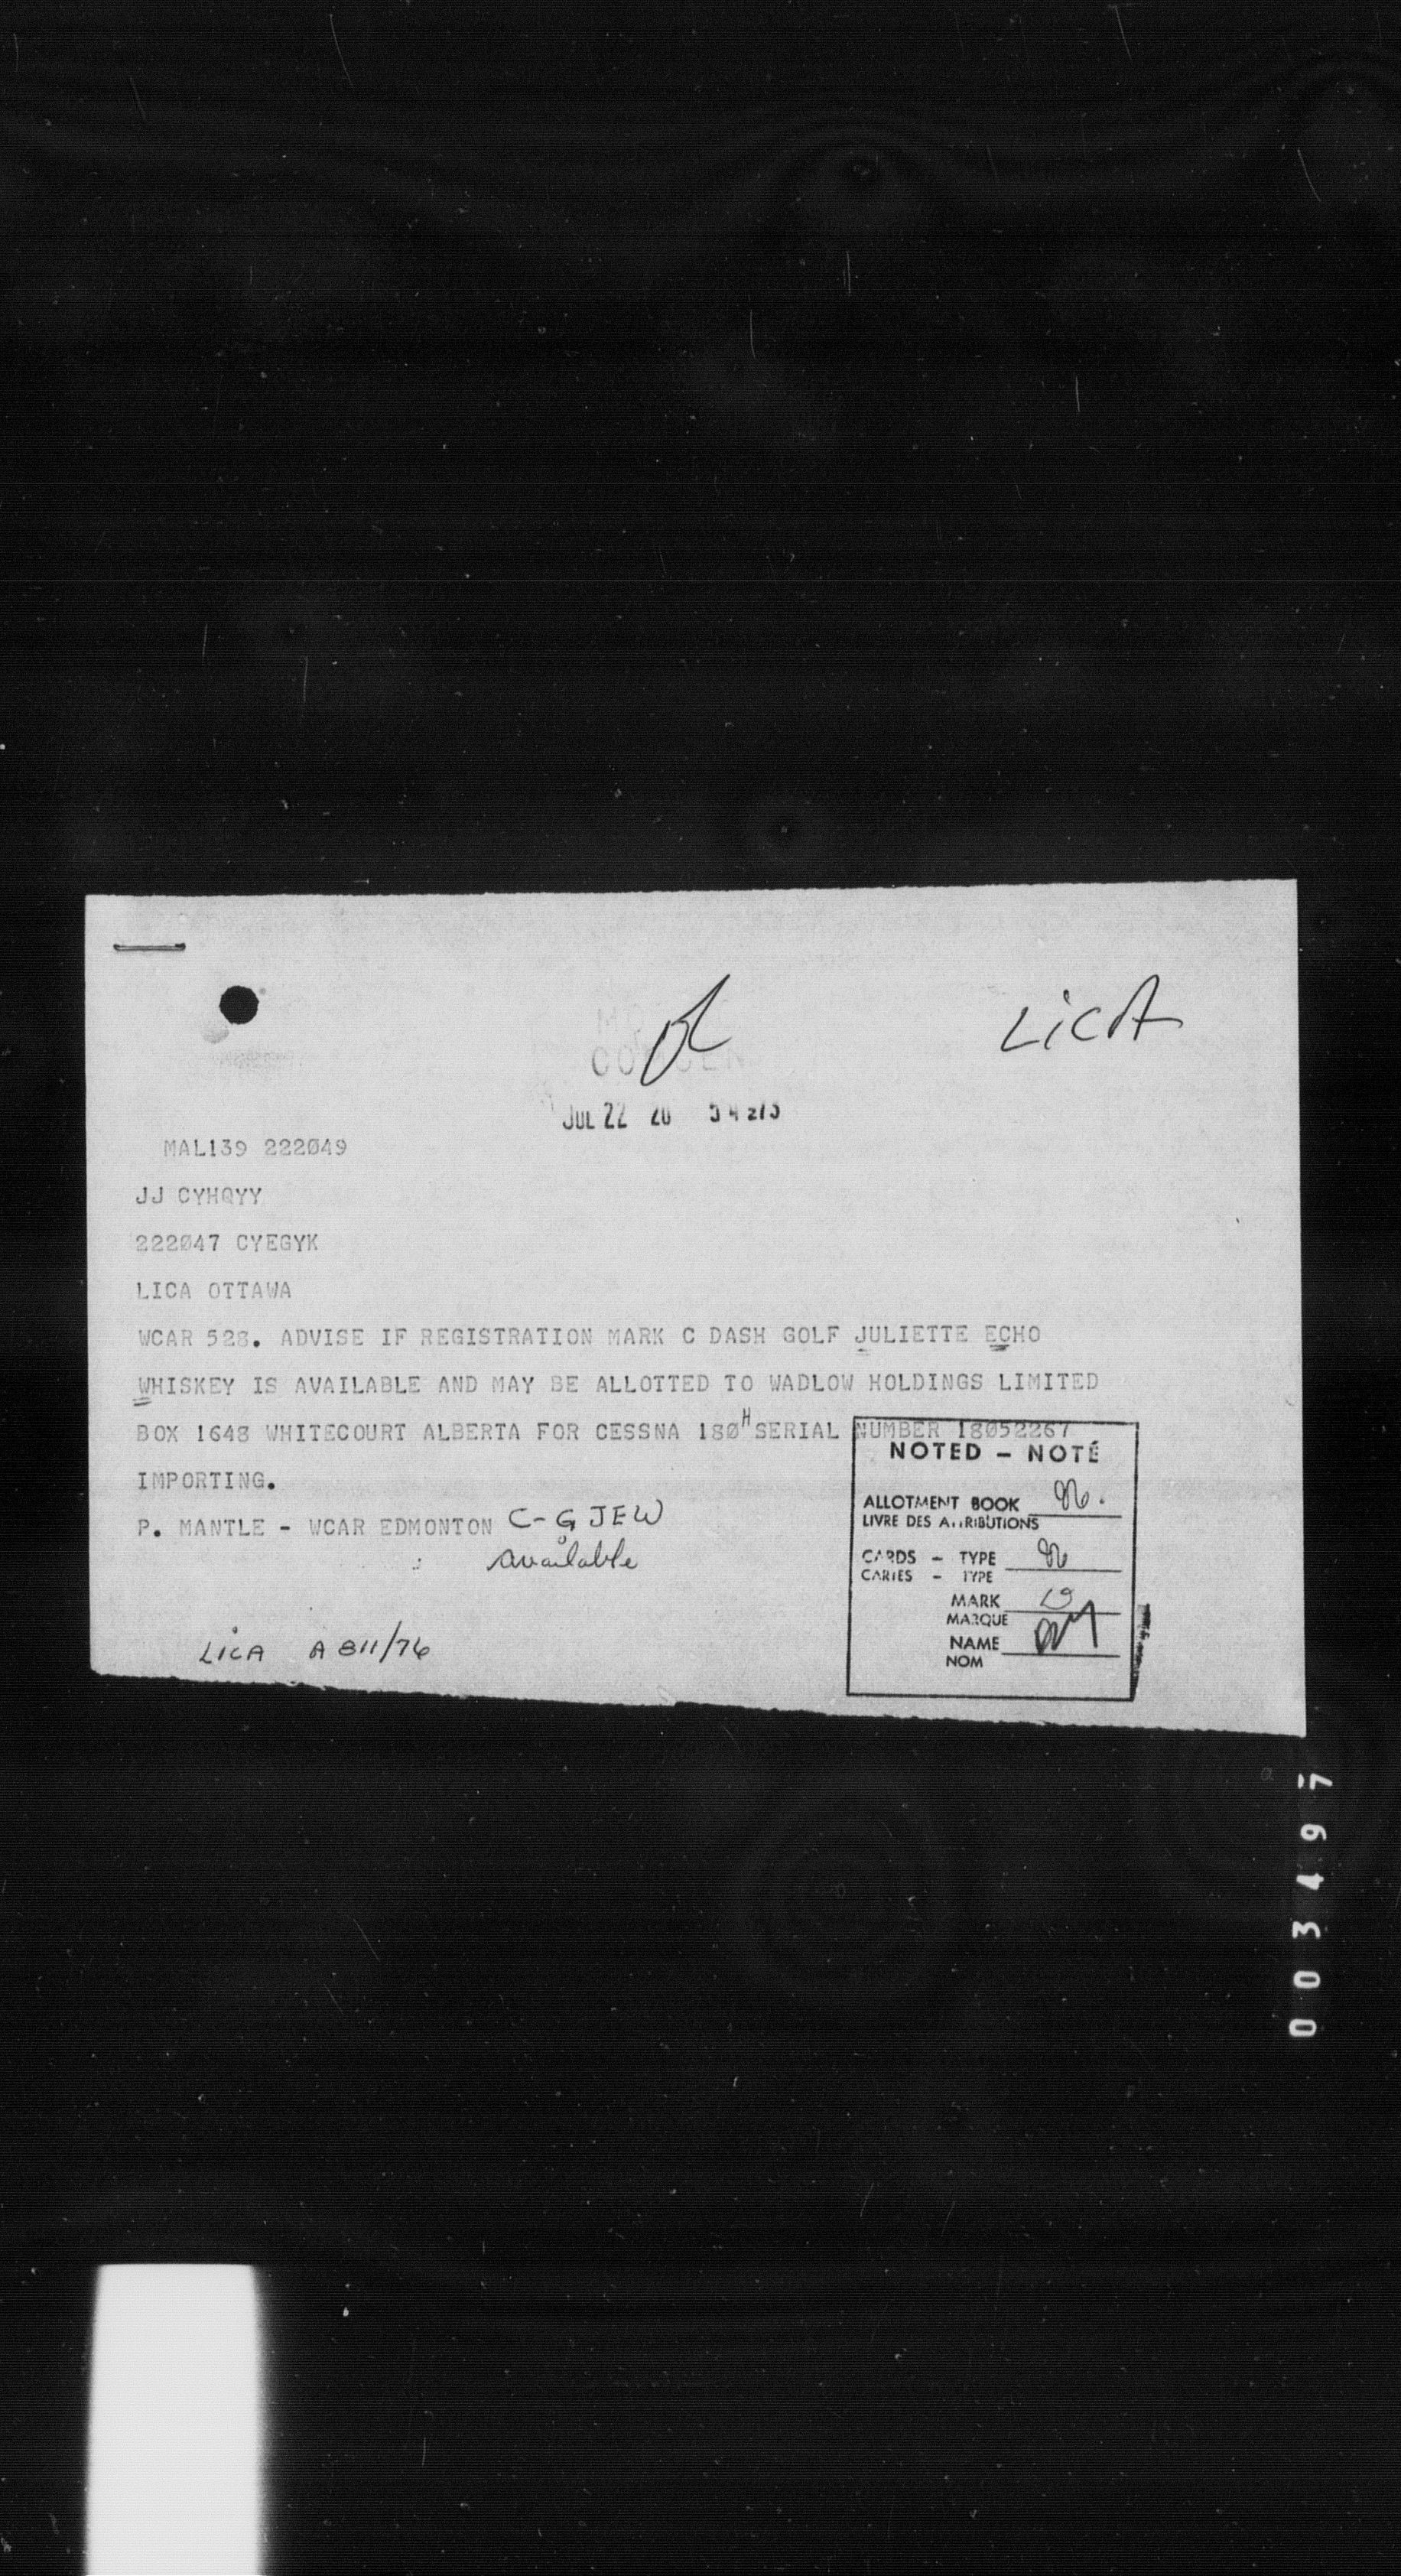 LicA
JUL 22 20
MAL139 222049
JJ CYHQYY
222047 CYEGYK
LICA OTTAWA
WCAR 528. ADVISE IF REGISTRATION MARK C DASH GOLF JULIETTE ECHO
WHISKEY IS AVAILABLE AND MAY BE ALLOTTED TO WADLOW HOLDINGS LIMITED
BOX 1648 WHITECOURT ALBERTA FOR CESSNA 180H SERIAL NUMBER 18052267
IMPORTING.
P. MANTLE - WCAR EDMONTON C-GJEW
available
NOTED - NOTÉ
ALLOTMENT BOOK
LIVRE DES ATTRIBUTIONS
CARDS - TYPE
CARTES - TYPE
MARK
MARQUE
NAME
NOM
LicA A811/76
003497